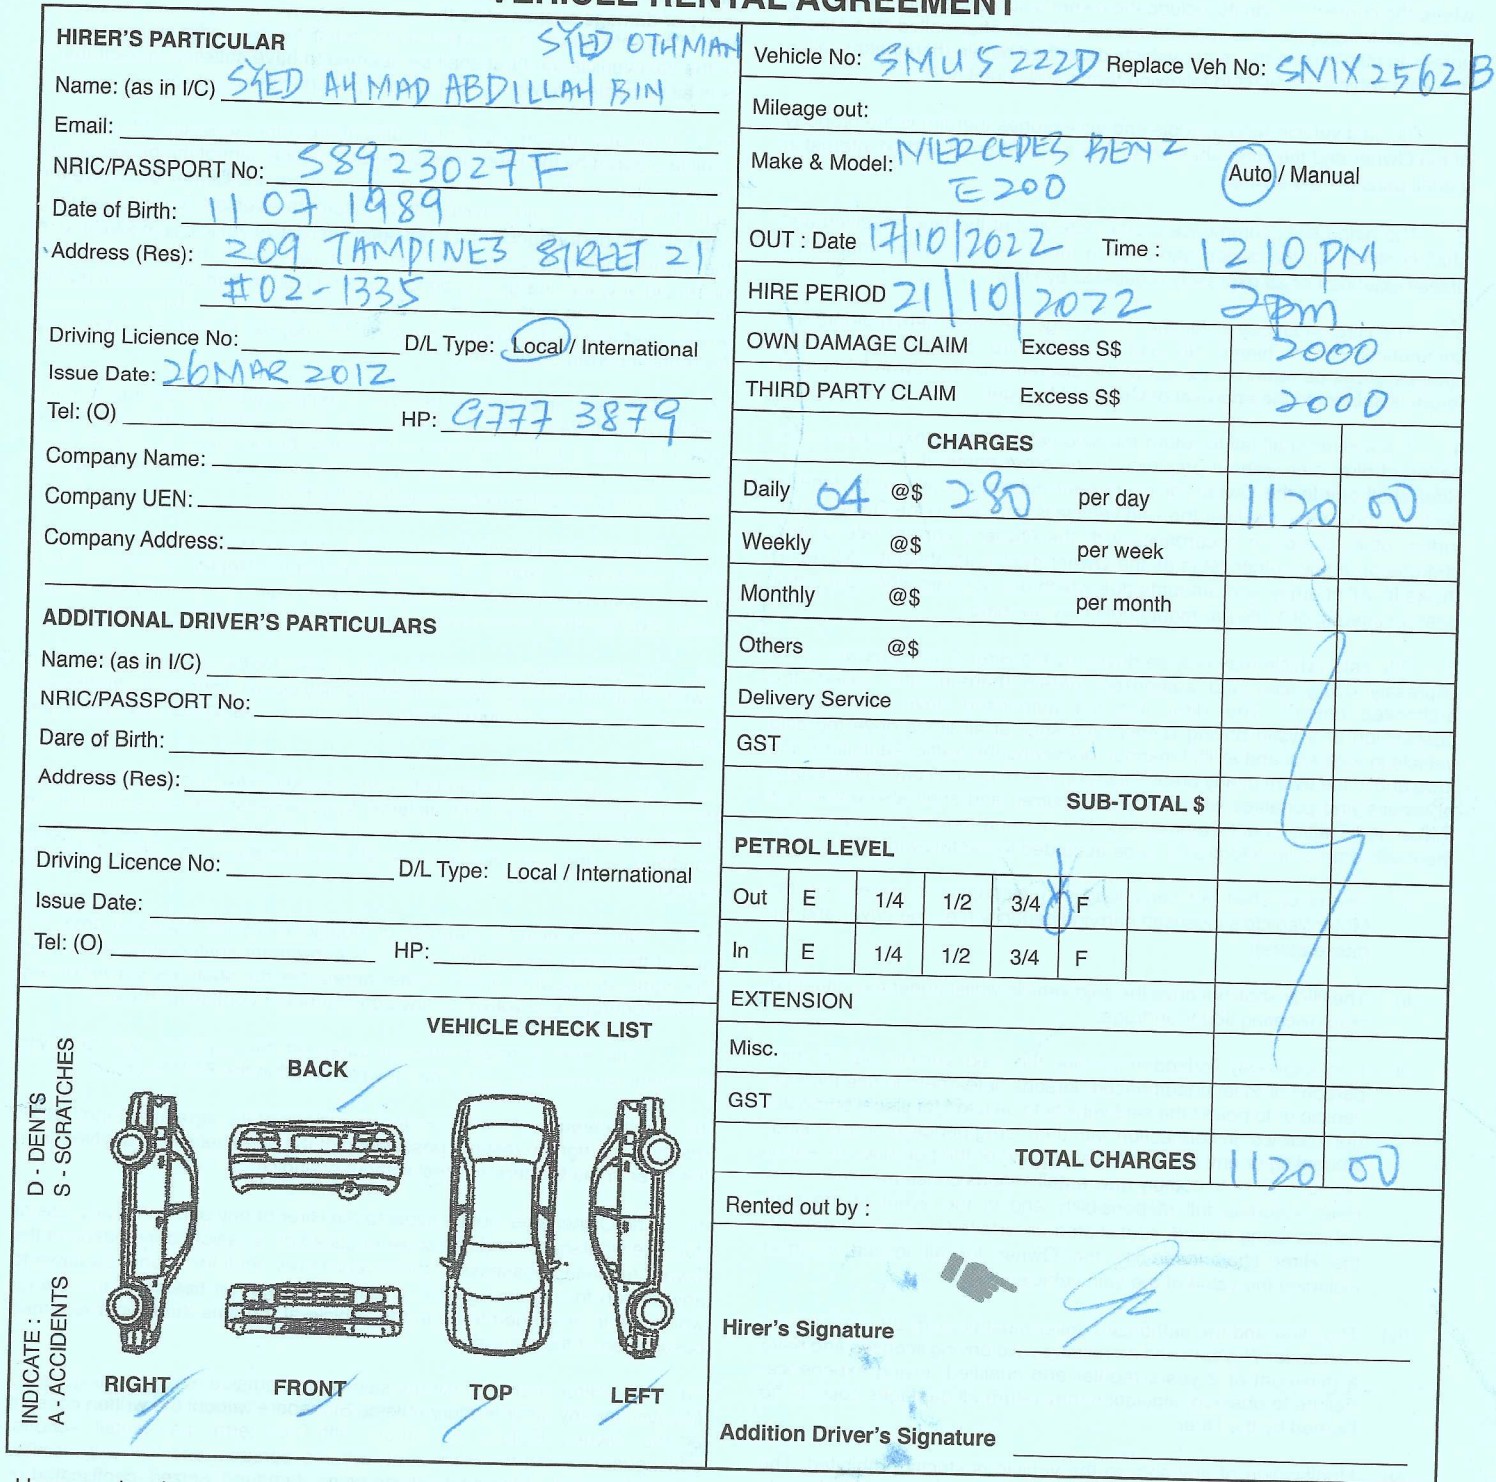 VEHICLE RENTAL AGREEMENT
HIRER'S PARTICULAR
SYED OTHMAN
Name: (as in I/C) SYED AHMAD ABDILLAH BIN
Email:
NRIC/PASSPORT No: S8923027F
Date of Birth: 11 07 1989
Address (Res): 209 TAMPINES STREET 21
#02-1335
Driving Licience No: D/L Type: Local / International
Issue Date: 26 MAR 2012
Tel: (O) HP: 9777 3879
Company Name:
Company UEN:
Company Address:
ADDITIONAL DRIVER'S PARTICULARS
Name: (as in I/C)
NRIC/PASSPORT No:
Dare of Birth:
Address (Res):
Driving Licence No: D/L Type: Local / International
Issue Date:
Tel: (O) HP:
VEHICLE CHECK LIST
BACK
D - DENTS
S - SCRATCHES
INDICATE :
A - ACCIDENTS
RIGHT FRONT TOP LEFT
Vehicle No: SMU5222D Replace Veh No: SMX2562B
Mileage out:
Make & Model: MERCEDES BENZ
E200 Auto / Manual
OUT : Date 17/10/2022 Time : 1210PM
HIRE PERIOD 21/10/2022 2pm
OWN DAMAGE CLAIM Excess S$ 2000
THIRD PARTY CLAIM Excess S$ 2000
CHARGES
Daily 04 @$ 280 per day 1120 00
Weekly @$ per week
Monthly @$ per month
Others @$
Delivery Service
GST
SUB-TOTAL $
PETROL LEVEL
Out E 1/4 1/2 3/4 F
In E 1/4 1/2 3/4 F
EXTENSION
Misc.
GST
TOTAL CHARGES 1120 00
Rented out by :
Hirer's Signature
Addition Driver's Signature